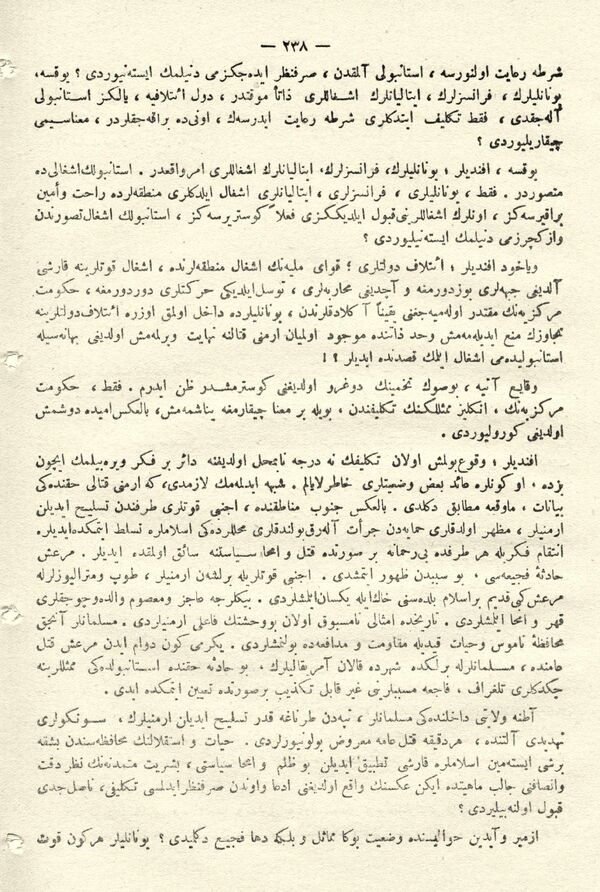 — ٢٣٨ —
شرطه رعایت اولنورسه ، استانبولی آلمقدن ، صرفنظر ایده‌جکزمی دنیلمك ایسته‌نیوردی ؟ یوقسه،
یونانلیلرك ، فرانسزلرك ، ایتالیانلرك اشغاللری ذاتاً موقتدر ، دول ائتلافیه ، یالکز استانبولی
آله‌جقدی ، فقط تکلیف ایتدکلری شرطه رعایت ایدرسه‌ك ، اونی‌ده براقه‌جقلردر ، معناسیمی
چیقاریلیوردی ؟
یوقسه ، افندیلر ، یونانلیلرك، فرانسزلرك، ایتالیانلرك اشغاللری امرواقعدر . استانبولك‌اشغالی‌ده
متصوردر . فقط ، یونانلیلری ، فرانسزلری ، ایتالیانلری اشغال ایلدکلری منطقه‌لرده راحت وأمین
براقیرسه‌کز ، اونلرك اشغالارینی‌قبول ایلدیککزی فعلاً کوستریرسه‌کز ، استانبولك اشغال‌تصورندن
وازکچرزمی دنیلمك ایسته‌نیلیوردی ؟
ویاخود افندیلر ، ائتلاف دولتلری ؛ قوای ملیه‌نك اشغال منطقه‌لرنده ، اشغال قوتلرینه قارشی
آلدیغی جبهه‌لری بوزدورمغه و آچدیغی محاربه‌لری ، توسل‌ایلدیکی حرکتلری دوردورمغه ، حکومت
مرکزیه‌نك مقتدر اوله‌میه‌جغنی یقیناً آ کلادقلرندن ، یونانلیلرده داخل اولمق اوزره ائتلاف‌دولتلرینه
تجاوزك منع ایدیله‌مه‌مش وحد ذاتنده موجود اولمیان ارمنی قتالنه نهایت ویرلمه‌مش اولدیغی بهانه‌سیله
استانبولیده‌می اشغال ایتمك قصدنده ایدیلر ؟!
وقایع آتیه ، بوصوك تخمینك دوغرو اولدیغنی کوسترمشدر ظن ایدرم . فقط ، حکومت
مرکزیه‌نك ، انکلیز ممثللکنك تکلیفندن ، بویله بر معنا چیقارمغه یناشمه‌مش، بالعکس‌امیده دوشمش
اولدیغی کورولیوردی .
افندیلر ، وقوع‌بولمش اولان تکلیفك نه درجه نابمحل اولدیغنه دائر بر فکر ویره‌بیلمك ایچون
بزده ، اوکونلره عائد بعض وضعیتلری خاطرلایالم . شبهه ایدلمه‌مك لازمدی، که ارمنی قتالی حقنده‌کی
بیانات ، ماوقعه مطابق دکلدی . بالعکس جنوب مناطقنده ، اجنبی قوتلری طرفندن تسلیح ایدیلن
ارمنیلر ، مظهر اولدقلری حمایه‌دن جرأت آله‌رق‌بولندقلری محللرده‌کی اسلاملره تسلط ایتمکده‌ایدیلر.
انتقام فکریله هر طرفده بی‌رحمانه بر صورتده قتل و امحا سیاستنه سالق اولمقده ایدیلر . مرعش
حادثهٔ فجیعه‌سی ، بو سببدن ظهور ایتمشدی . اجنبی قوتلریله برلشه‌ن ارمنیلر ، طوپ ومترالیوزلرله
مرعش‌کبی‌قدیم براسلام بلده‌سنی خاك‌ایله یکسان‌ایتمشلردی . بیکلرجه عاجز ومعصوم والده‌وچوجقلری
قهر و امحا ایتمشلردی . تاریخده امثالی نامسبوق اولان بووحشتك فاعلی ارمنیلردی . مسلمانلر آنجق
محافظهٔ ناموس وحیات قیدیله مقاومت و مدافعه‌ده بولنمشلردی . یکرمی کون دوام ایدن مرعش قتل
عامنده ، مسلمانلرله برلکده شهرده قالان آمریقالیلرك ، بو حادثه حقنده استانبولده‌کی ممثللرینه
چکدکلری تلغراف ، فاجعه مسببلرینی غیر قابل تکذیب برصورتده تعیین ایتمکده ایدی .
آطنه ولایتی داخلنده‌کی مسلمانلر ، تپه‌دن طرناغه قدر تسلیح ایدیلن ارمنیلرك ، سونکولری
تهدیدی آلتنده ، هردقیقه قتل‌عامه معروض بولونیورلردی . حیات و استقلالنك محافظه‌سندن بشقه
برشی ایسته‌مین اسلاملره قارشی تطبیق ایدیلن بو ظلم و امحا سیاستی ، بشریت متمدنه‌نك نظر دقت
وانصافنی جالب ماهیتده ایکن عکسنك واقع اولدیغنی ادعا واوندن صرفنظرایدلمسی تکلیفی، ناصل‌جدی
قبول اولنه‌بیلیردی ؟
ازمیر وآیدین حوالیسنده وضعیت بوکا مماثل و بلکه دها فجیع دکلمیدی ؟ یونانلیلر هرکون قوت